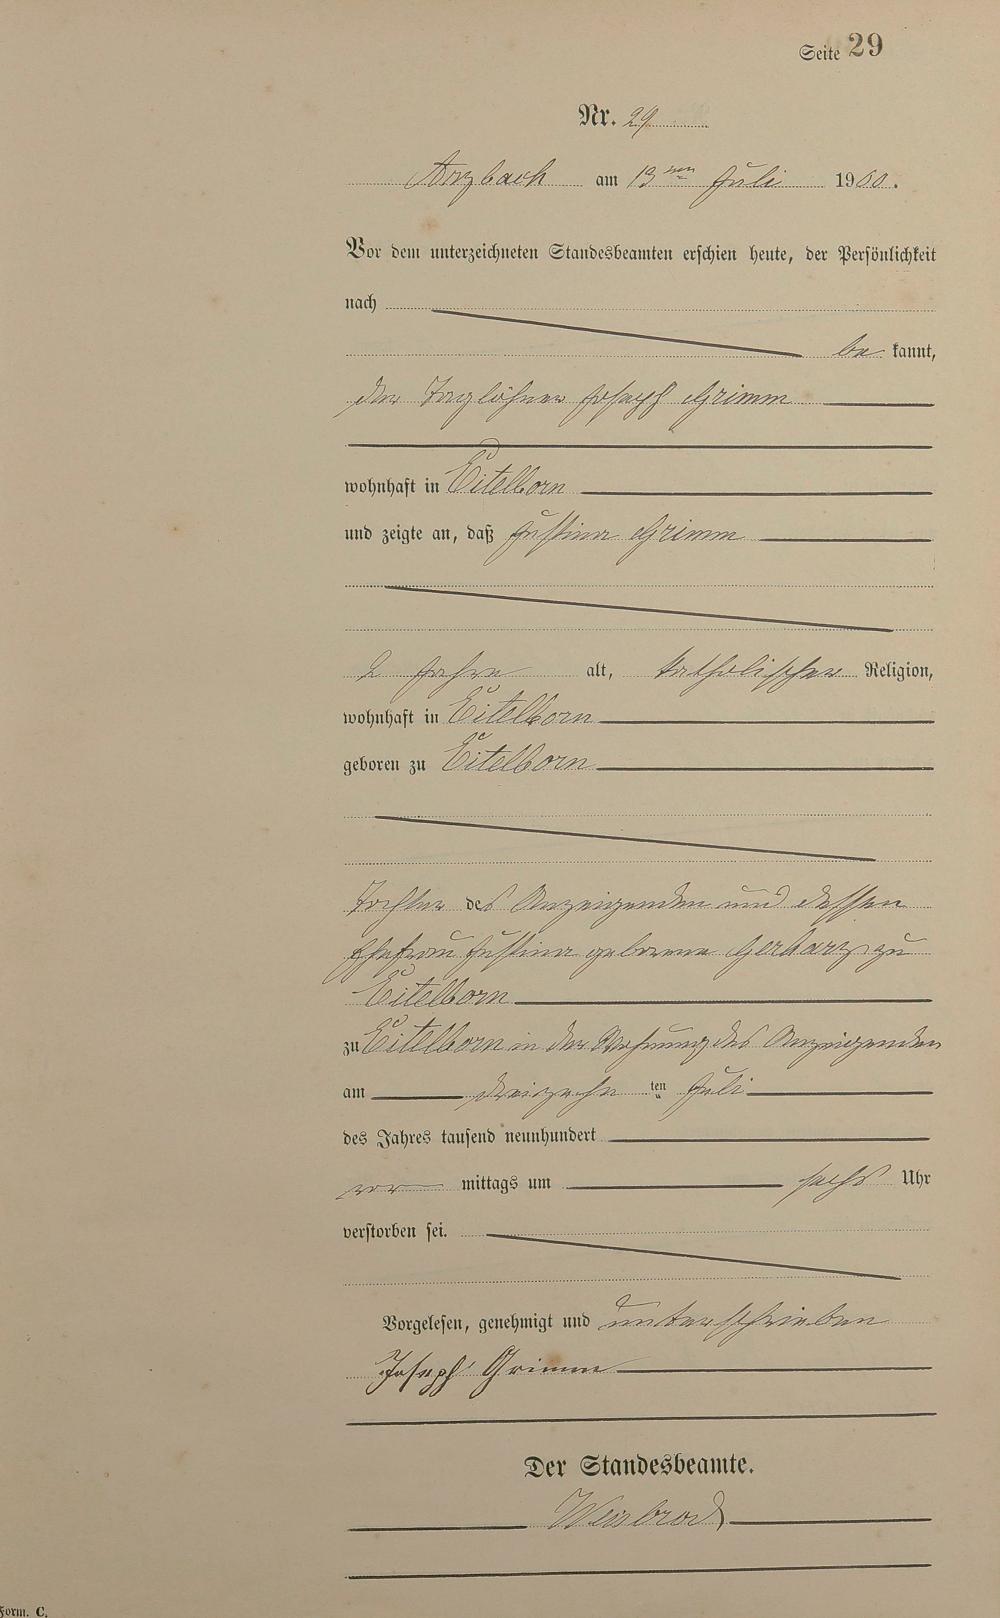 Seite 29
Nr. 29
Arzbach am 13ten Juli 1900.
Vor dem unterzeichneten Standesbeamten erschien heute, der Persönlichkeit
nach
be kannt,
der Taglöhner Joseph Grimm
wohnhaft in Eitelborn
und zeigte an, daß Justina Grimm
2 Jahre alt, katholischer Religion,
wohnhaft in Eitelborn
geboren zu Eitelborn
Tochter des Anzeigenden und dessen
Ehefrau Justina geborene Gerharz zu
Eitelborn
zu Eitelborn in der Wohnung des Anzeigenden
am dreizehn ten Juli
des Jahres tausend neunhundert
vor mittags um sechs Uhr
verstorben sei.
Vorgelesen, genehmigt und unterschrieben
Joseph Grimm
Der Standesbeamte.
Weisbrod
Form. C.